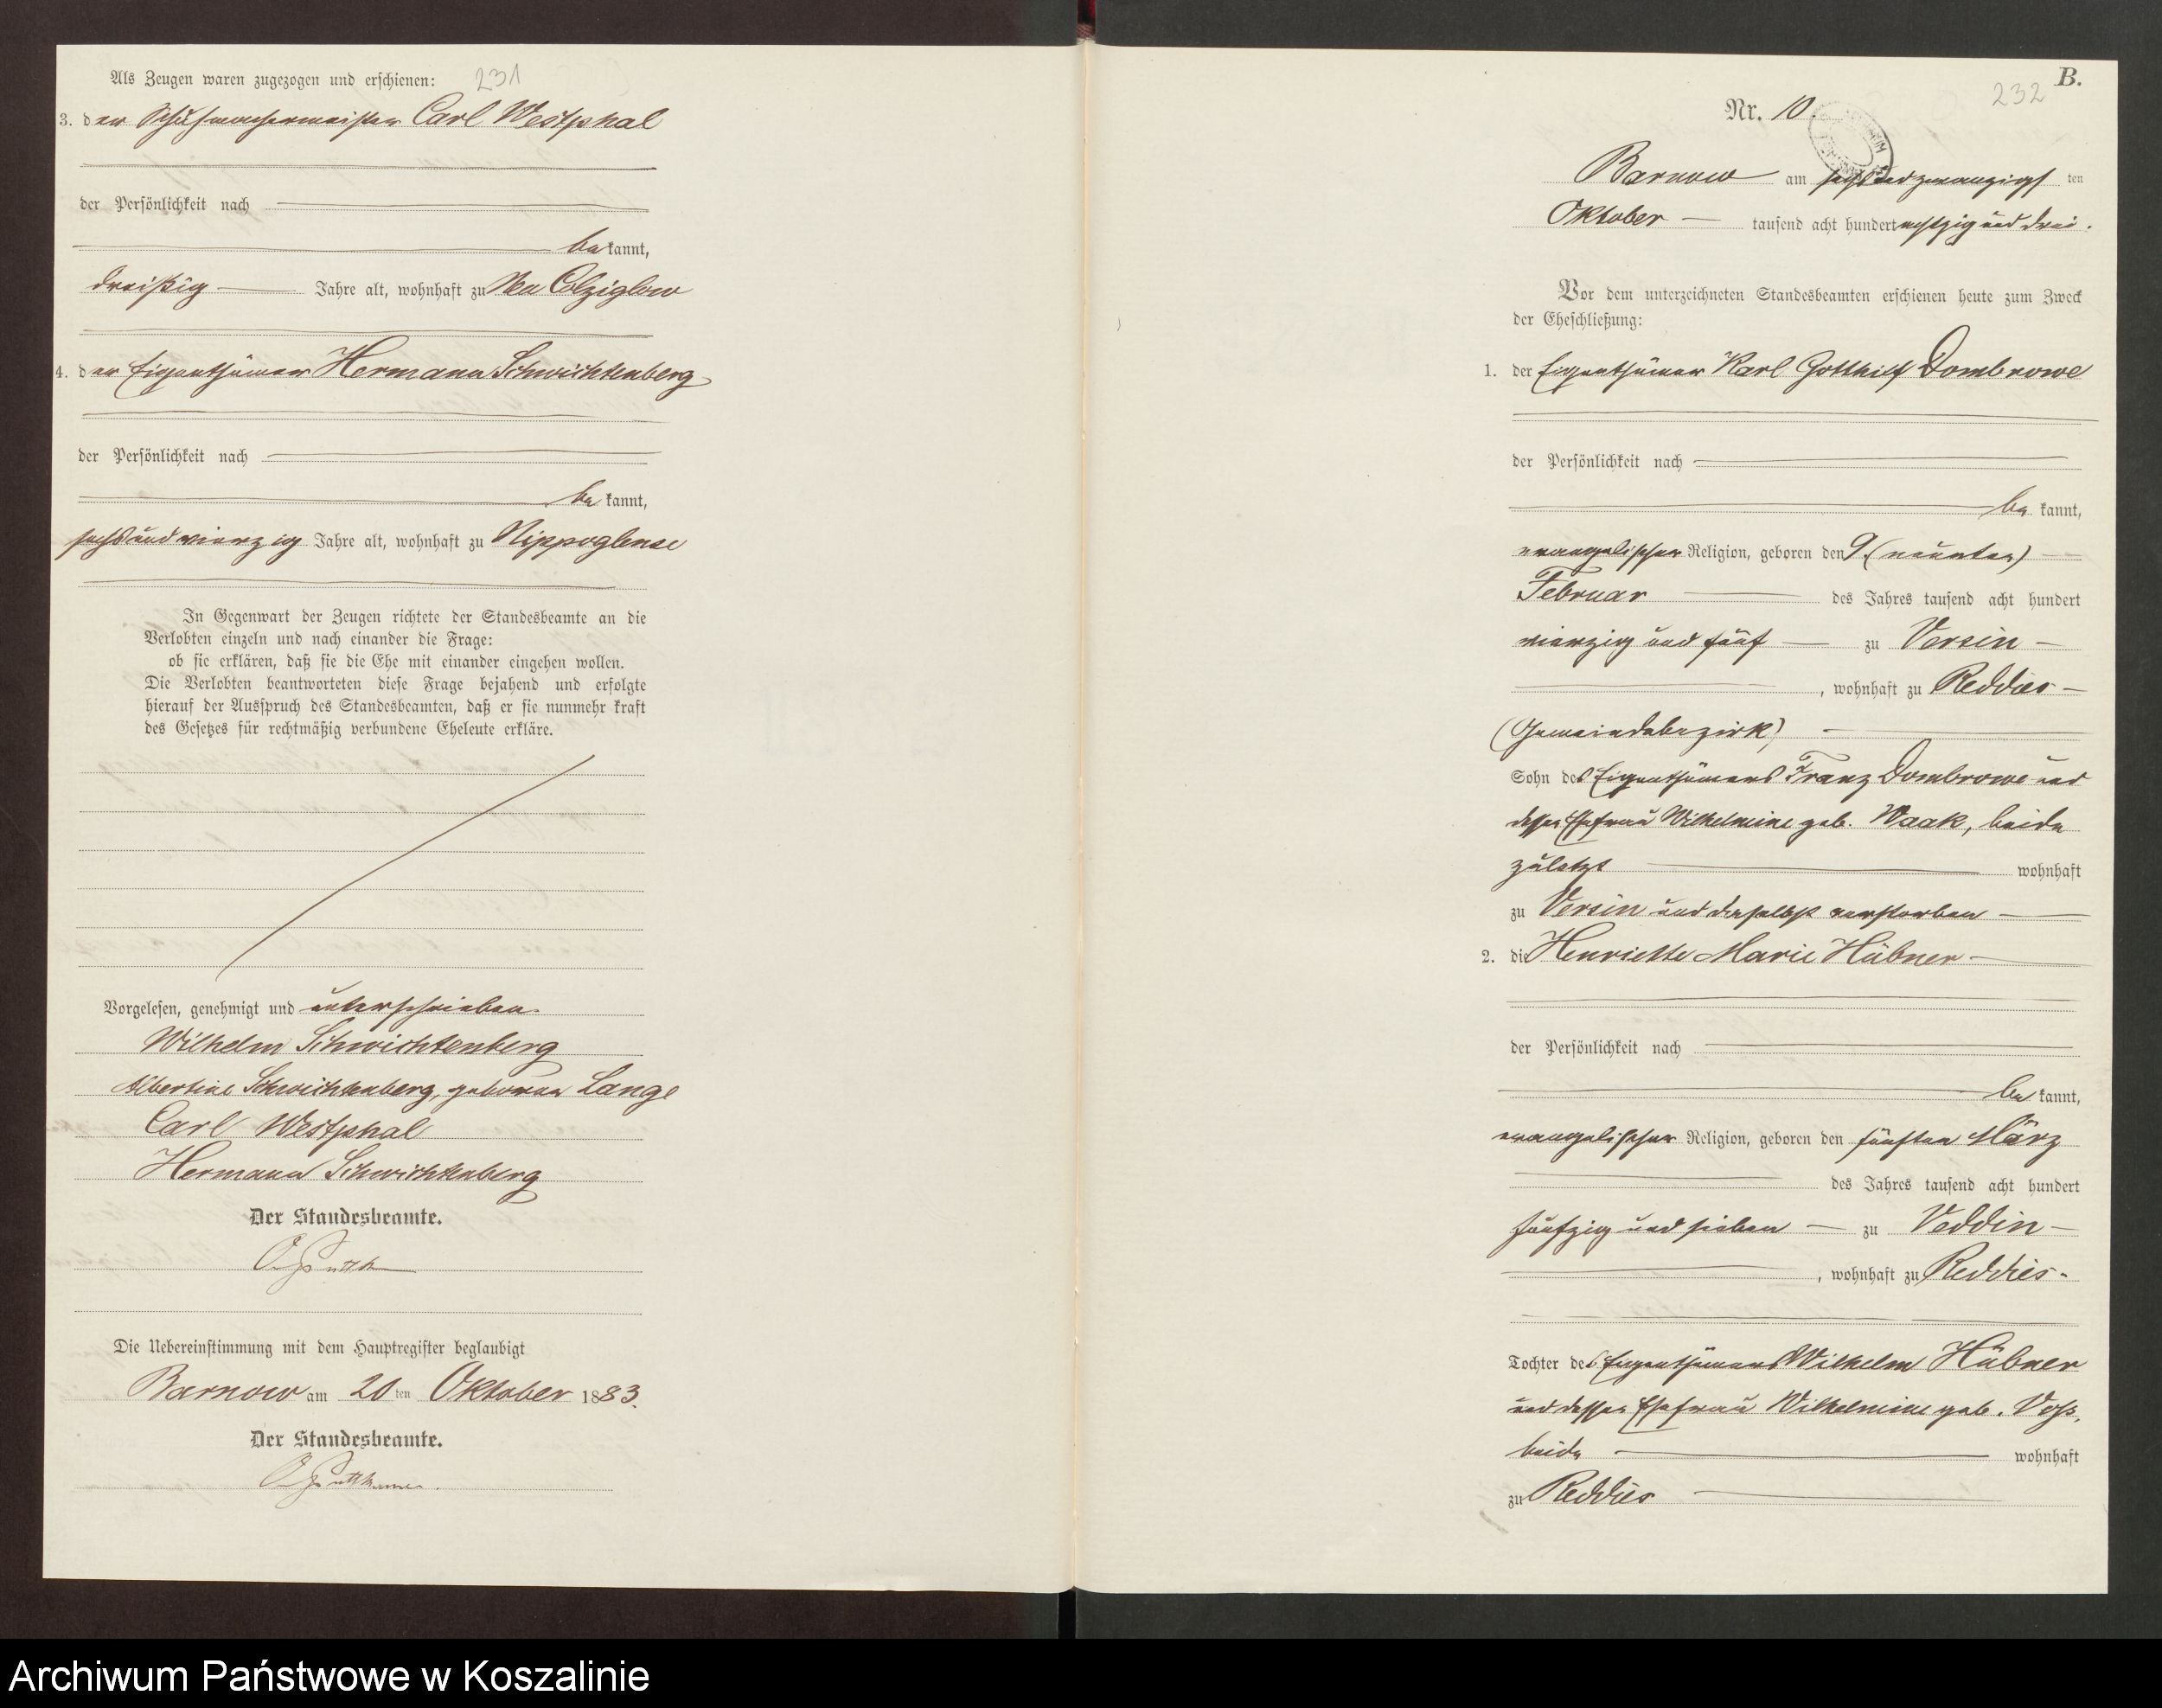 Als Zeugen waren zugezogen und erschienen: 231
3. der Schuhmachermeister Carl Westphal
der Persönlichkeit nach
be kannt,
dreißig Jahre alt, wohnhaft zu Neu Colziglow
4. der Eigenthümer Hermann Schwichtenberg
der Persönlichkeit nach
be kannt,
sechsundvierzig Jahre alt, wohnhaft zu Nippoglense
In Gegenwart der Zeugen richtete der Standesbeamte an die
Verlobten einzeln und nach einander die Frage:
ob sie erklären, daß sie die Ehe mit einander eingehen wollen.
Die Verlobten beantworteten diese Frage bejahend und erfolgte
hierauf der Ausspruch des Standesbeamten, daß er sie nunmehr kraft
des Gesetzes für rechtmäßig verbundene Eheleute erkläre.
Vorgelesen, genehmigt und unterschrieben.
Wilhelm Schwichtenberg
Albertine Schwichtenberg, geborene Lange
Carl Westphal
Hermann Schwichtenberg
Der Standesbeamte.
Die Uebereinstimmung mit dem Hauptregister beglaubigt
Barnow am 20 ten Oktober 1883.
Der Standesbeamte.
B.
232
Nr. 10.
Barnow am sechsundzwanzigs ten
Oktober tausend acht hundert achtzig und drei.
Vor dem unterzeichneten Standesbeamten erschienen heute zum Zweck
der Eheschließung:
1. der Eigenthümer Karl Gotthilf Dombrowe
der Persönlichkeit nach
be kannt,
evangelischer Religion, geboren den 9. (neunten)
Februar des Jahres tausend acht hundert
vierzig und fünf zu Versin
, wohnhaft zu Reddies
(Gemeindebezirk)
Sohn des Eigenthümers Franz Dombrowe und
dessen Ehefrau Wilhelmine geb. Waak, beide
zuletzt wohnhaft
zu Versin und daselbst verstorben
2. die Henriette Marie Hübner
der Persönlichkeit nach
be kannt,
evangelischer Religion, geboren den fünften März
des Jahres tausend acht hundert
fünfzig und sieben zu Veddin
, wohnhaft zu Reddies
Tochter des Eigenthümers Wilhelm Hübner
und dessen Ehefrau Wilhelmine geb. Voß,
beide wohnhaft
zu Reddies
Archiwum Państwowe w Koszalinie